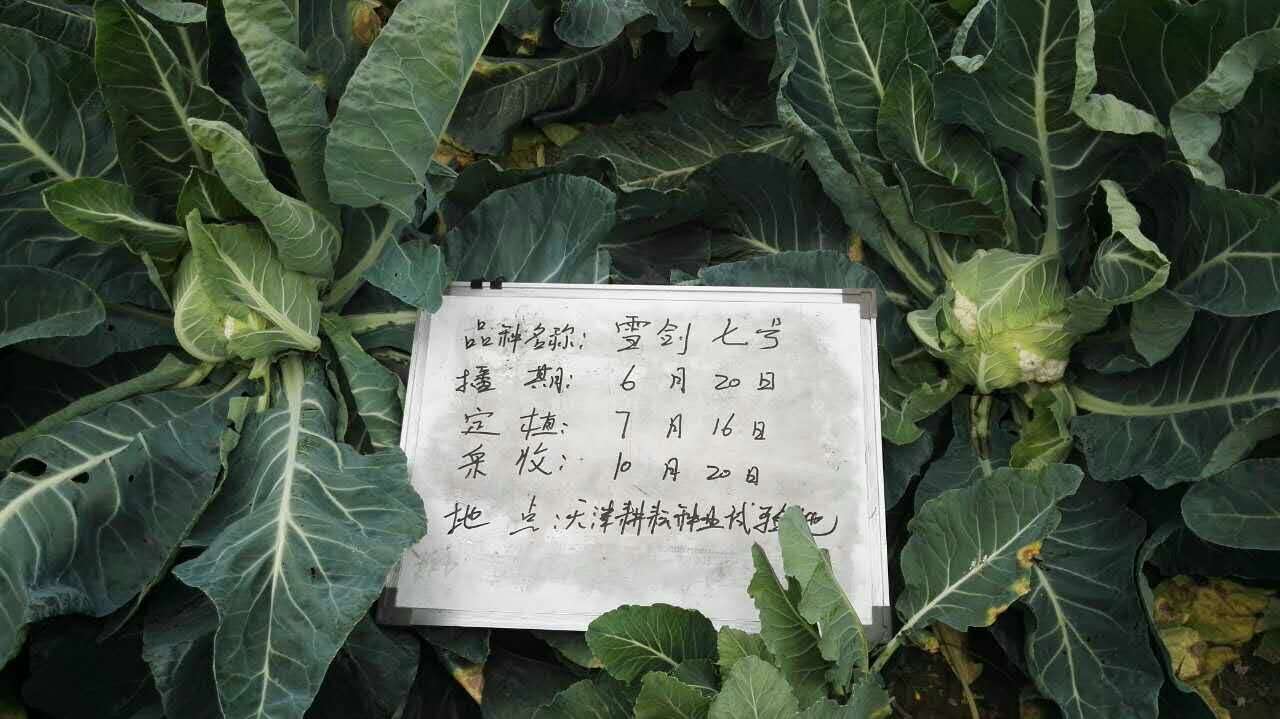 品种名称: 雪剑七号
播期: 6月20日
定植: 7月16日
采收: 10月20日
地点: 天津耕耘种业试验地